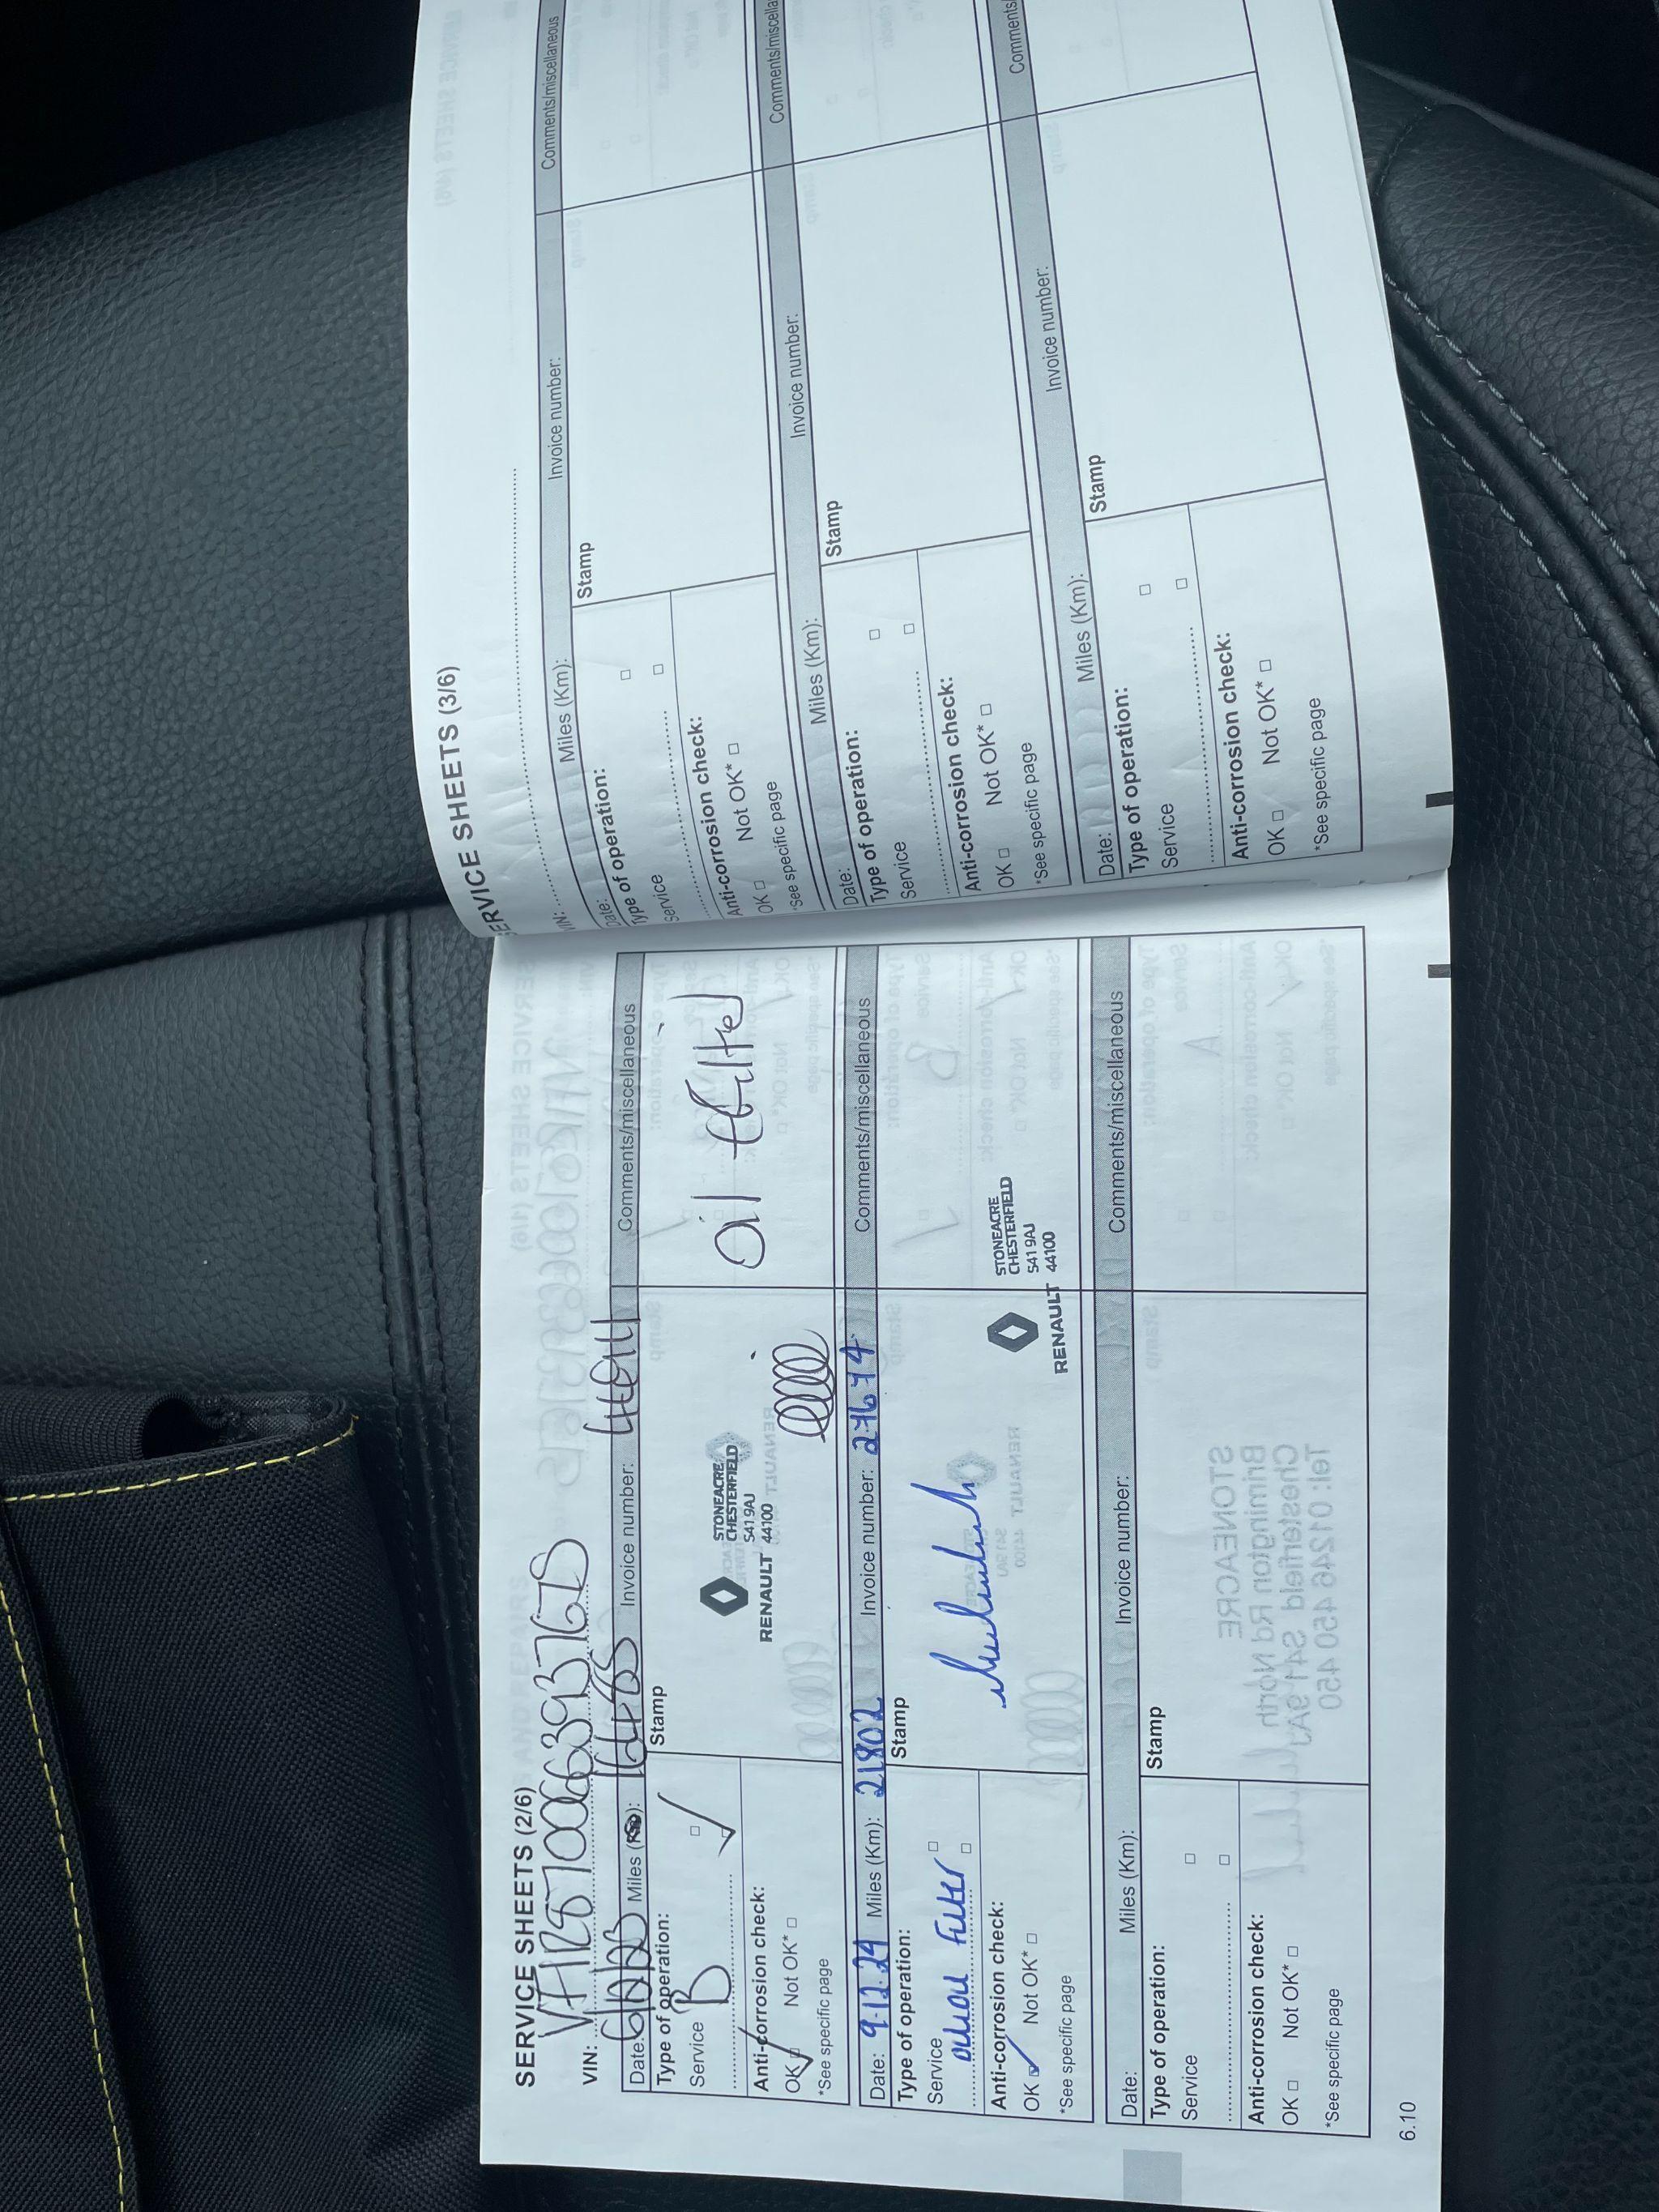 SERVICE SHEETS (2/6)
VIN:
Miles
Invoice number:
Comments/miscellaneous
Type of operation:
Service B
Anti-corrosion check:
OK Not OK*
*See specific page
Stamp
STONEACRE
CHESTERFIELD
S41 9AJ
RENAULT 44100
Oil filter
Date: 9.12.24 Miles (Km): 21802 Invoice number: 27674 Comments/miscellaneous
Type of operation:
Service
Filter
Anti-corrosion check:
OK Not OK*
*See specific page
Stamp
STONEACRE
CHESTERFIELD
S41 9AJ
RENAULT 44100
Date: Miles (Km): Invoice number: Comments/miscellaneous
Type of operation:
Service
Anti-corrosion check:
OK Not OK*
*See specific page
Stamp
6.10
SERVICE SHEETS (3/6)
VIN:
Date: Miles (Km): Invoice number: Comments/miscellaneous
Type of operation:
Service
Anti-corrosion check:
OK Not OK*
*See specific page
Stamp
Date: Miles (Km): Invoice number: Comments/miscellaneous
Type of operation:
Service
Anti-corrosion check:
OK Not OK*
*See specific page
Stamp
Date: Miles (Km): Invoice number: Comments
Type of operation:
Service
Anti-corrosion check:
OK Not OK*
*See specific page
Stamp